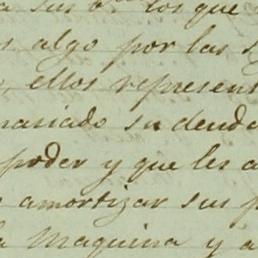 a sus los que
algo por las
ellos represen
masiado su deuda
poder y que les a
amortizar sus p
la Maquina y a